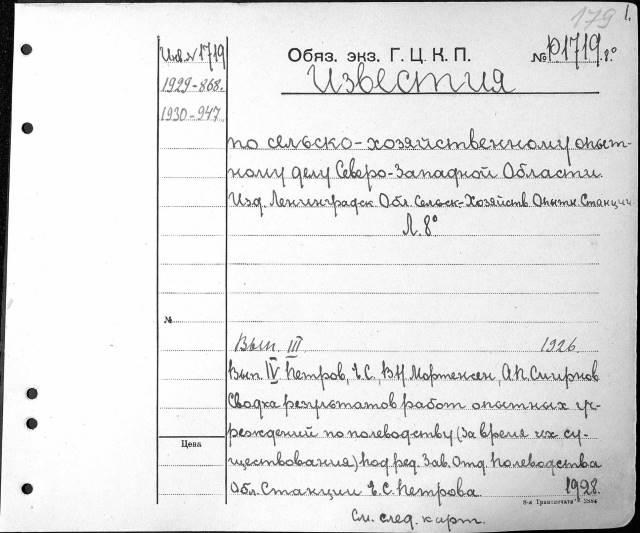 179 1.
Инв. № 1719
1929-868.
1930-947.
Обяз. экз. Г. Ц. К. П. № р1719 8°
Известия
по сельско-хозяйственному опыт-
ному делу Северо-Западной Области.
Изд. Ленинградск. Обл. Сельск-Хозяйств. Опытн. Станции
Л. 8°
№
Вып. III 1926.
Вып. IV Петров, Е.С., В.Н. Мортенсен, А.П. Смирнов
Сводка результатов работ опытных уч-
реждений по полеводству (за время их су-
ществования) под ред. Зав. Отд. Полеводства
Обл. Станции Е.С. Петрова. 1928.
Цена
См. след. карт.